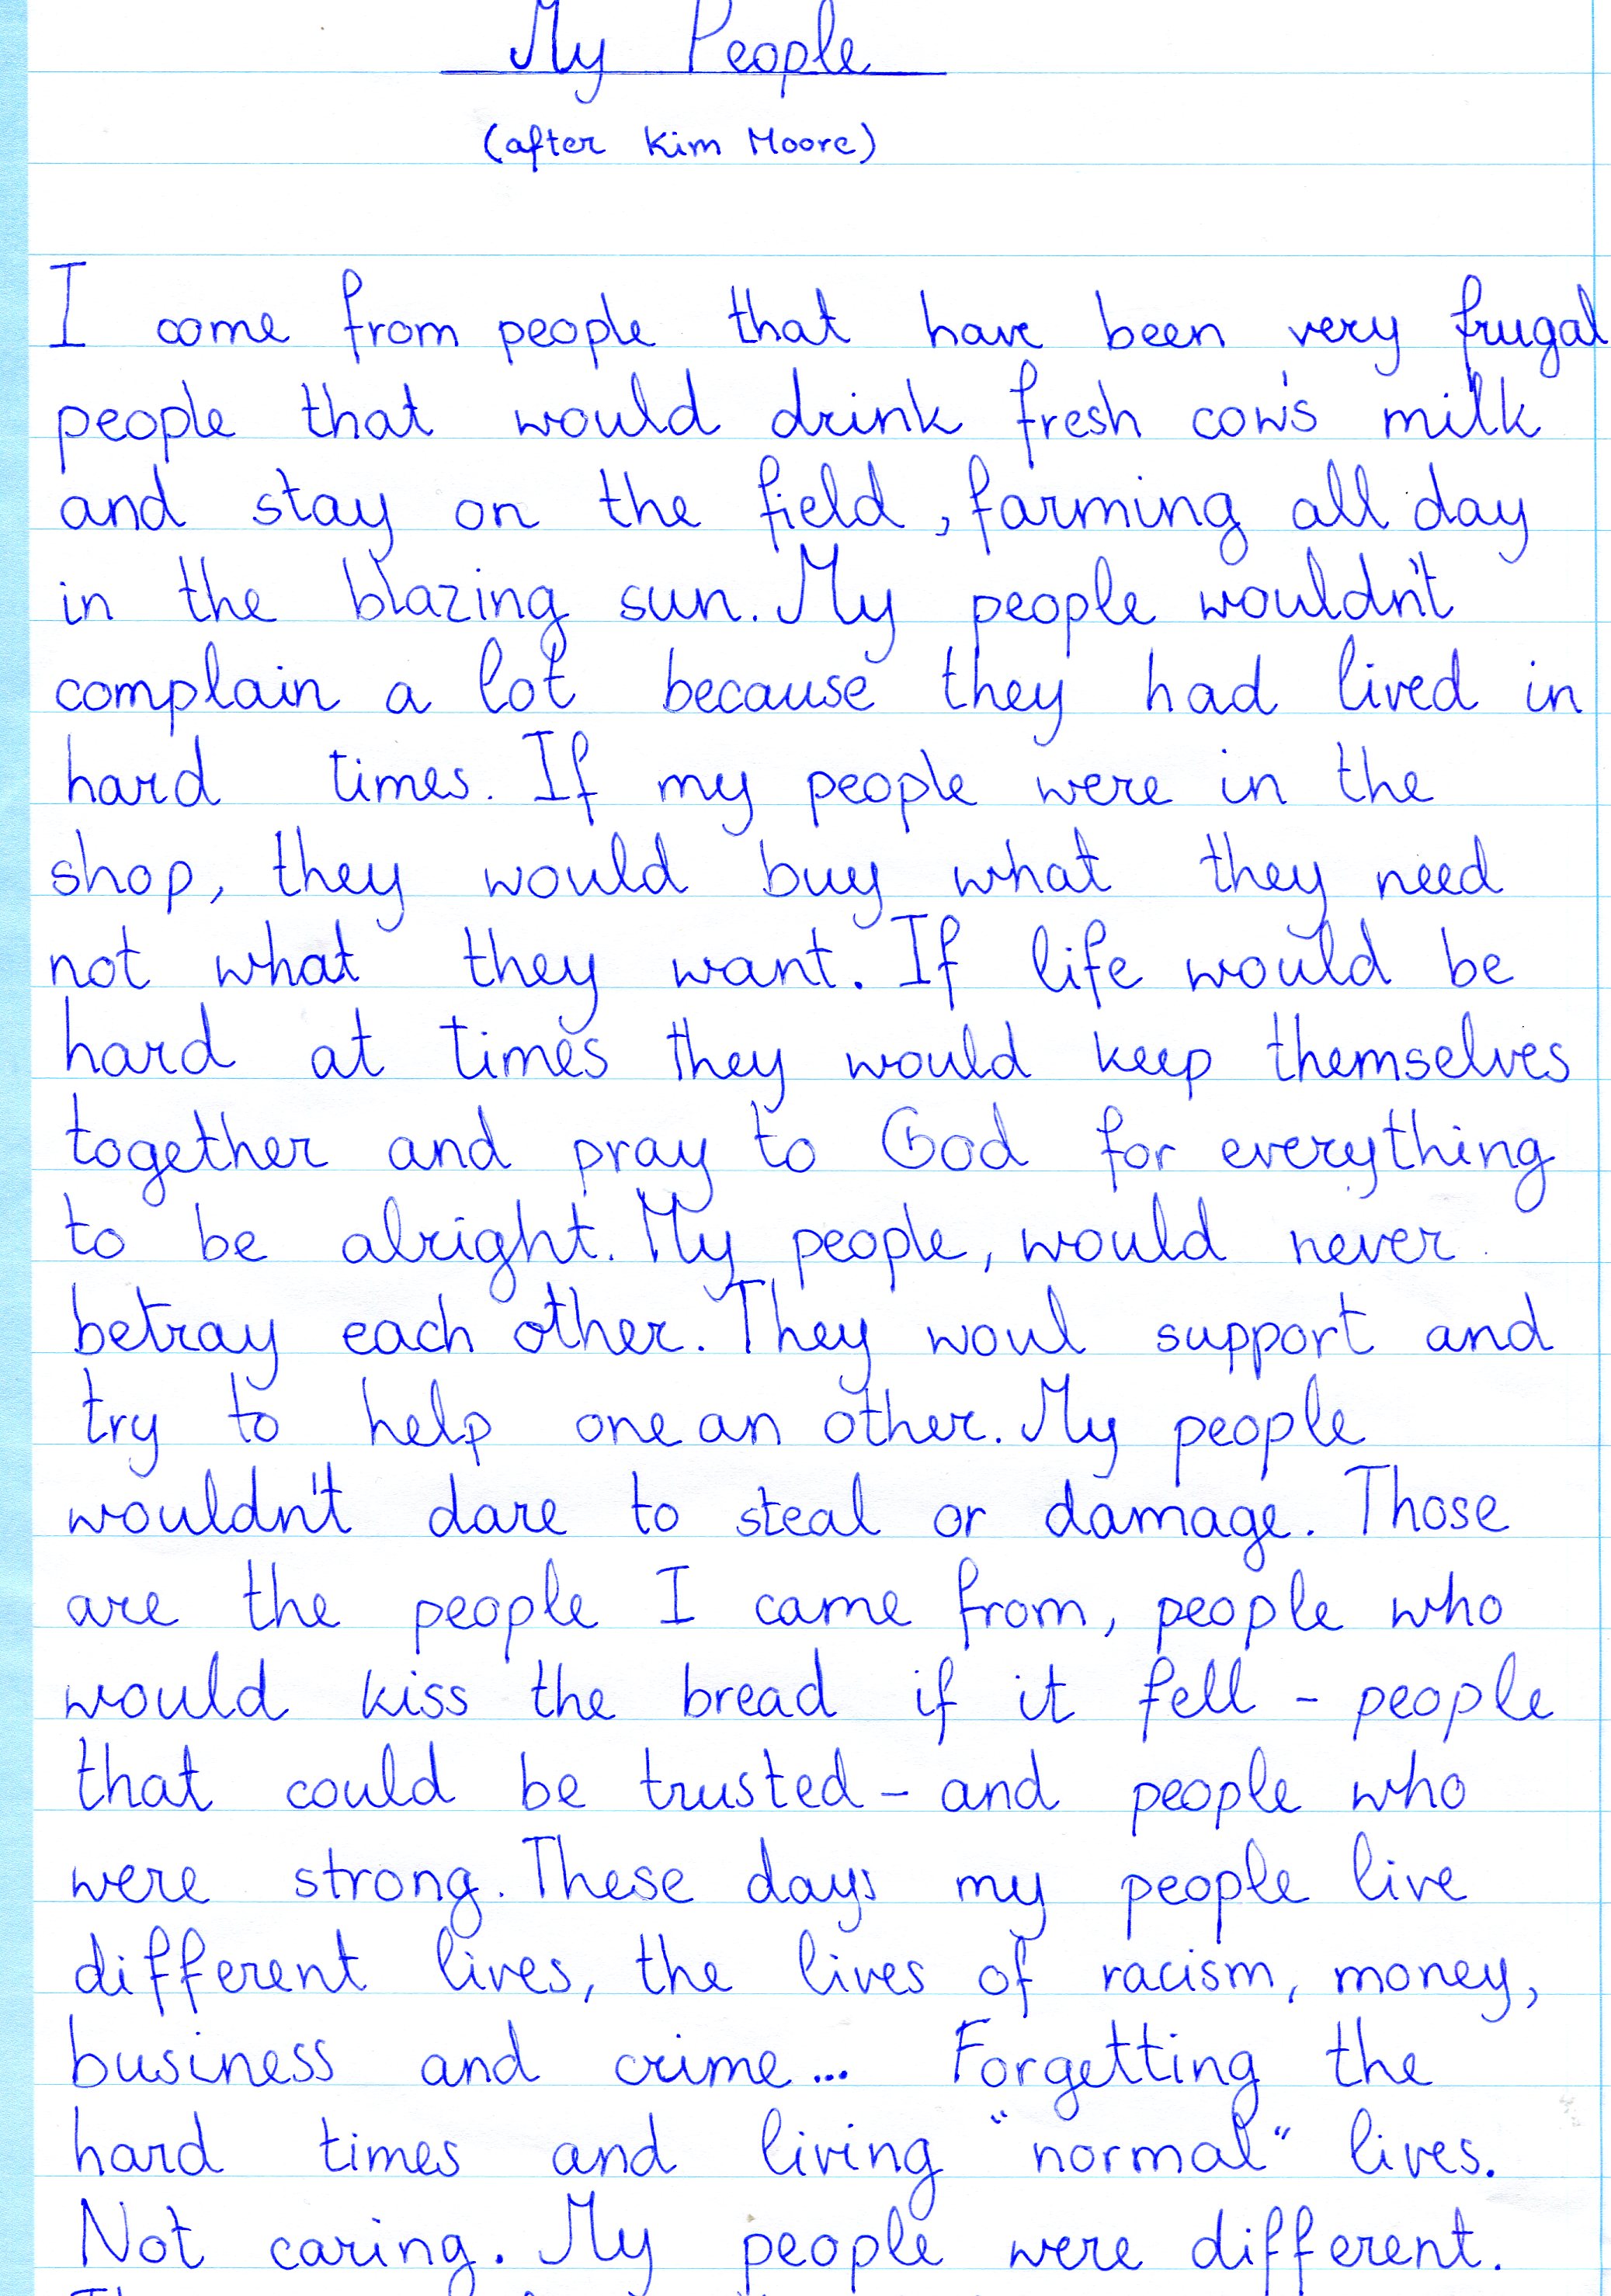 My People
(after Kim Moore)
I come from people that have been very frugal
people that would drink fresh cow's milk
and stay on the field, farming all day
in the blazing sun. My people wouldn't
complain a lot because they had lived in
hard times. If my people were in the
shop, they would buy what they need
not what they want. If life would be
hard at times they would keep themselves
together and pray to God for everything
to be alright. My people, would never
betray each other. They woul support and
try to help one an other. My people
wouldn't dare to steal or damage. Those
are the people I came from, people who
would kiss the bread if it fell - people
that could be trusted - and people who
were strong. These days my people live
different lives, the lives of racism, money,
business and crime... Forgetting the
hard times and living "normal" lives.
Not caring. My people were different.